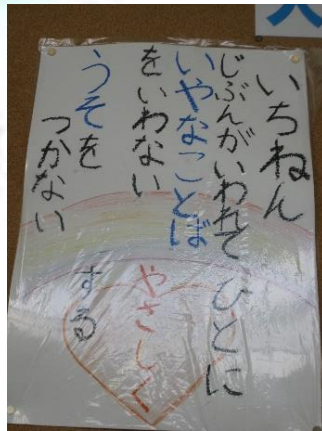 いちねん
じぶんがいわれて
いやなことば
をいわない
うそを
つかない
ひとに
やさしく
する